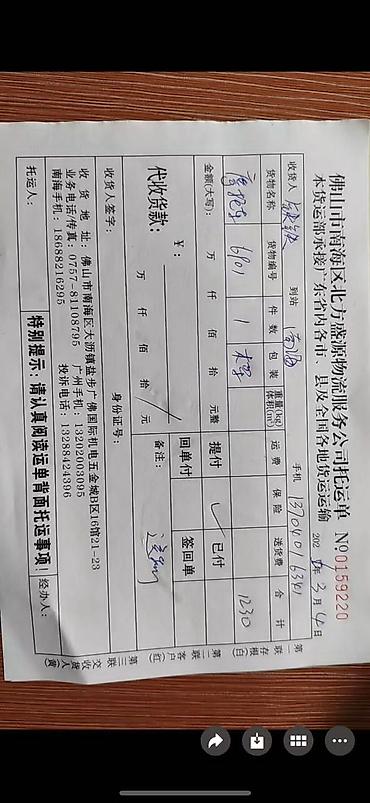 佛山市南海区北方盛源物流服务公司托运单 №0159220
本货运部承接广东省内各市、县及全国各地货运运输 202 年3月4日
收货人 到站 南海 手机 13704016341
货物名称 货物编号 件数 包装 重量(kg) 体积(m³) 运费 保险 送货费 合计
6901 1 1230
金额(大写): 万 仟 佰 拾 元整 提付 已付
回单付 签回单
代收货款: ¥: 万 仟 佰 拾 元 备注:
收货人签字: 身份证号:
收货地址: 佛山市南海区大沥镇盐步广佛国际机电五金城B区16馆21-23
业务电话/传真: 0757-81108795 广州手机: 13202003095
南海手机: 18688216295 投诉电话: 13288424396
托运人: 特别提示: 请认真阅读运单背面托运事项 经办人:
第一联 存根(白)
第二联 客户(红)
第三联 交收货人(黄)